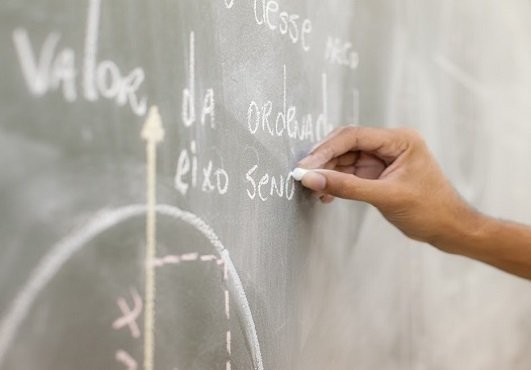 desse
valor da ordenad
eixo seno
x